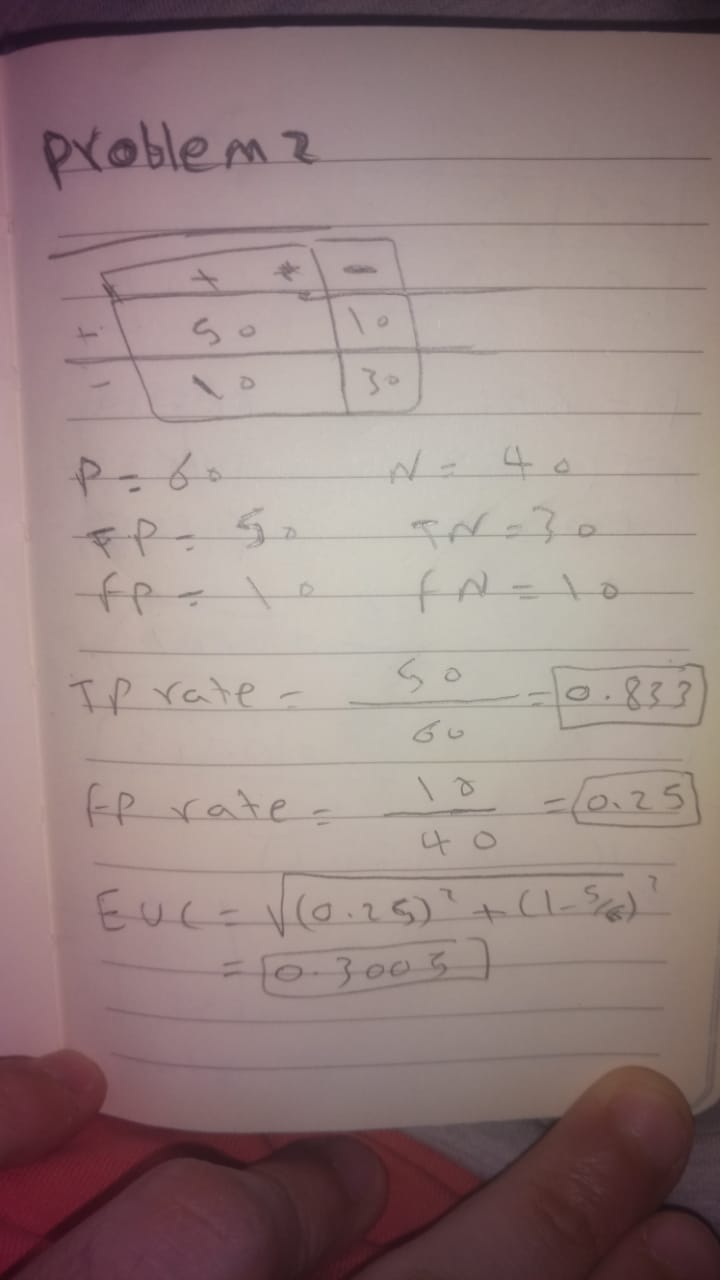 Problem 2
+ -
+ 50 10
- 10 30
P = 60 N = 40
TP = 50 TN = 30
fp = 10 fN = 10
TP rate = 50/60 = 0.833
fp rate = 10/40 = 0.25
EUC = √(0.25)² + (1-5/6)²
= 0.3005